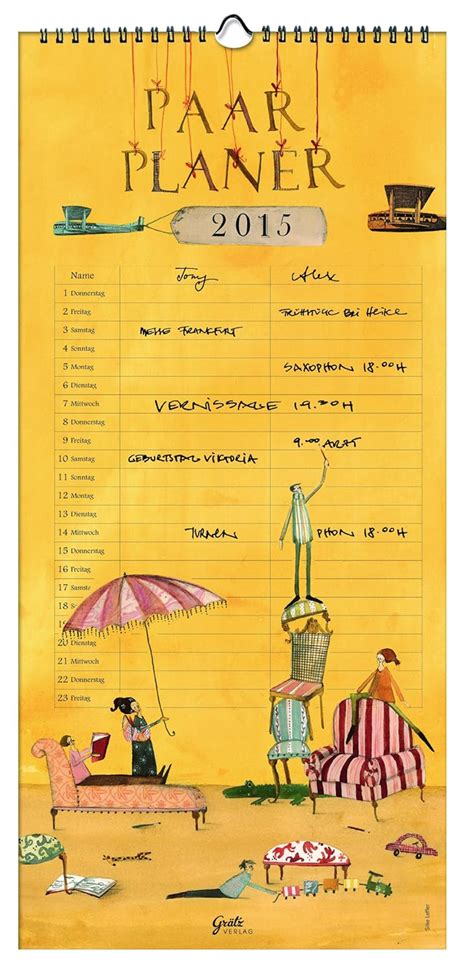 PAAR
PLANER
2015
Name Tony Alex
1 Donnerstag
2 Freitag FRÜHSTÜCK BEI HEIKE
3 Samstag MESSE FRANKFURT
4 Sonntag
5 Montag SAXOPHON 18.00H
6 Dienstag
7 Mittwoch VERNISSAGE 19.30H
8 Donnerstag
9 Freitag 9.00 ARZT
10 Samstag GEBURTSTAG VIKTORIA
11 Sonntag
12 Montag
13 Dienstag
14 Mittwoch TURNEN PHON 18.00H
15 Donnerstag
16 Freitag
17 Samst
18
19
20
21 Mittwoch
22 Donnerstag
23 Freitag
Silke Leffler
Grätz
VERLAG